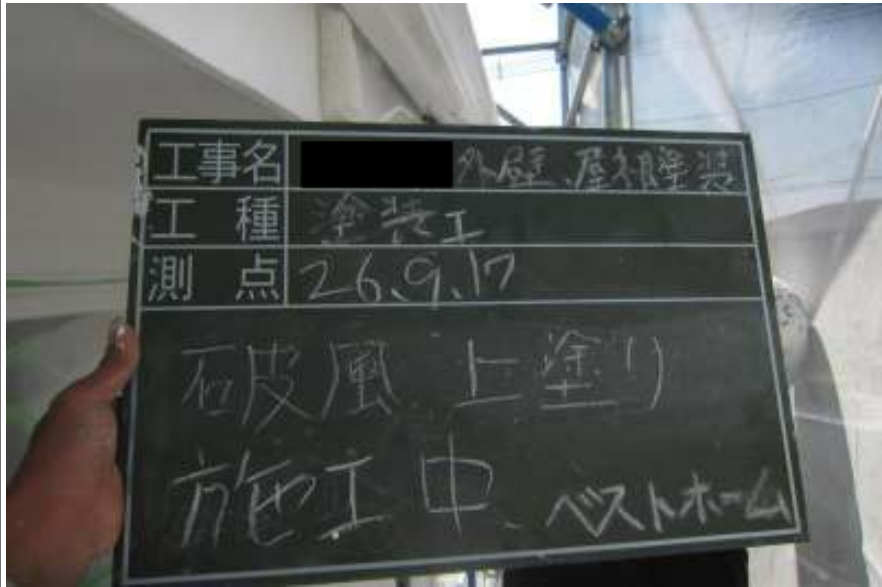 工事名 外壁、屋根塗装
工種 塗装工
測点 26、9、17
破風 上塗り
施工中、ベストホーム